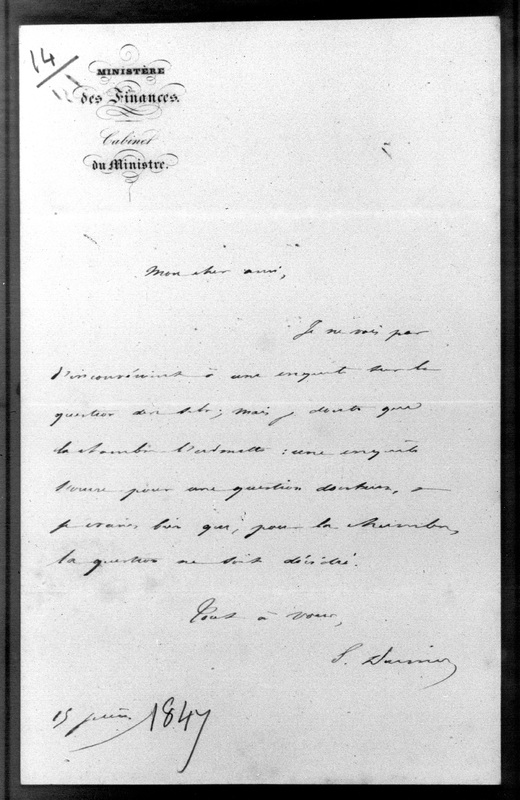 14
MINISTÈRE
des Finances.
Cabinet
du Ministre.
Mon cher ami,
Je ne vois pas
d'inconvénient à une enquête sur la
question des sels; mais je doute que
la chambre l'admette : une enquête
s'ouvre pour une question douteuse, et
je crains bien que, pour la chambre,
la question ne soit décidée.
Tout à vous,
S. Dumon
15 1847